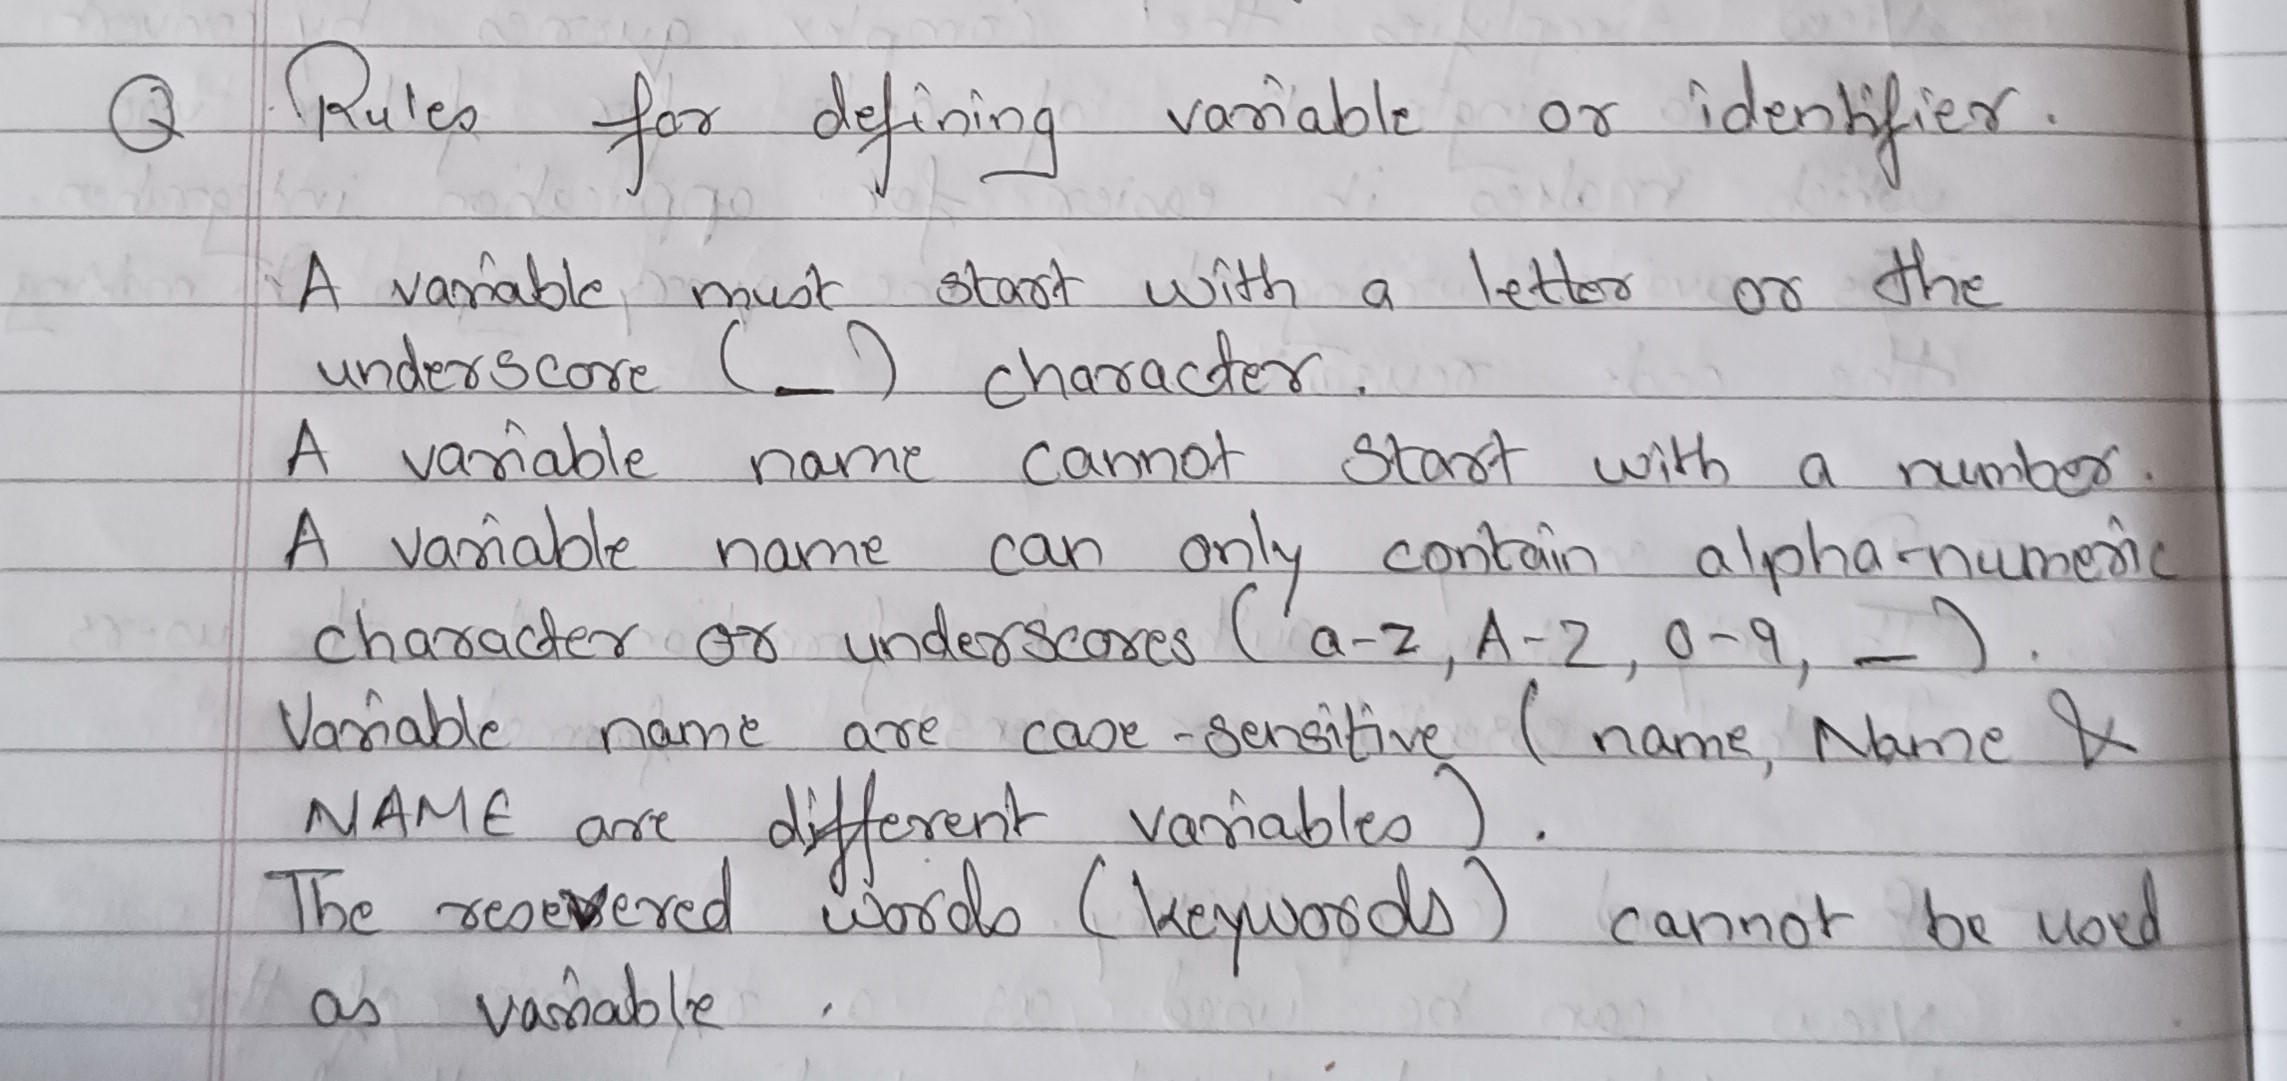 Q Rules for defining variable or identifier.
A variable must start with a letter or the
underscore (_) character.
A variable name cannot start with a number.
A variable name can only contain alpha-numeric
character or underscores (a-z, A-Z, 0-9, _).
Variable name are case-sensitive (name, Name &
NAME are different variables).
The resevered words (keywords) cannot be used
as variable.